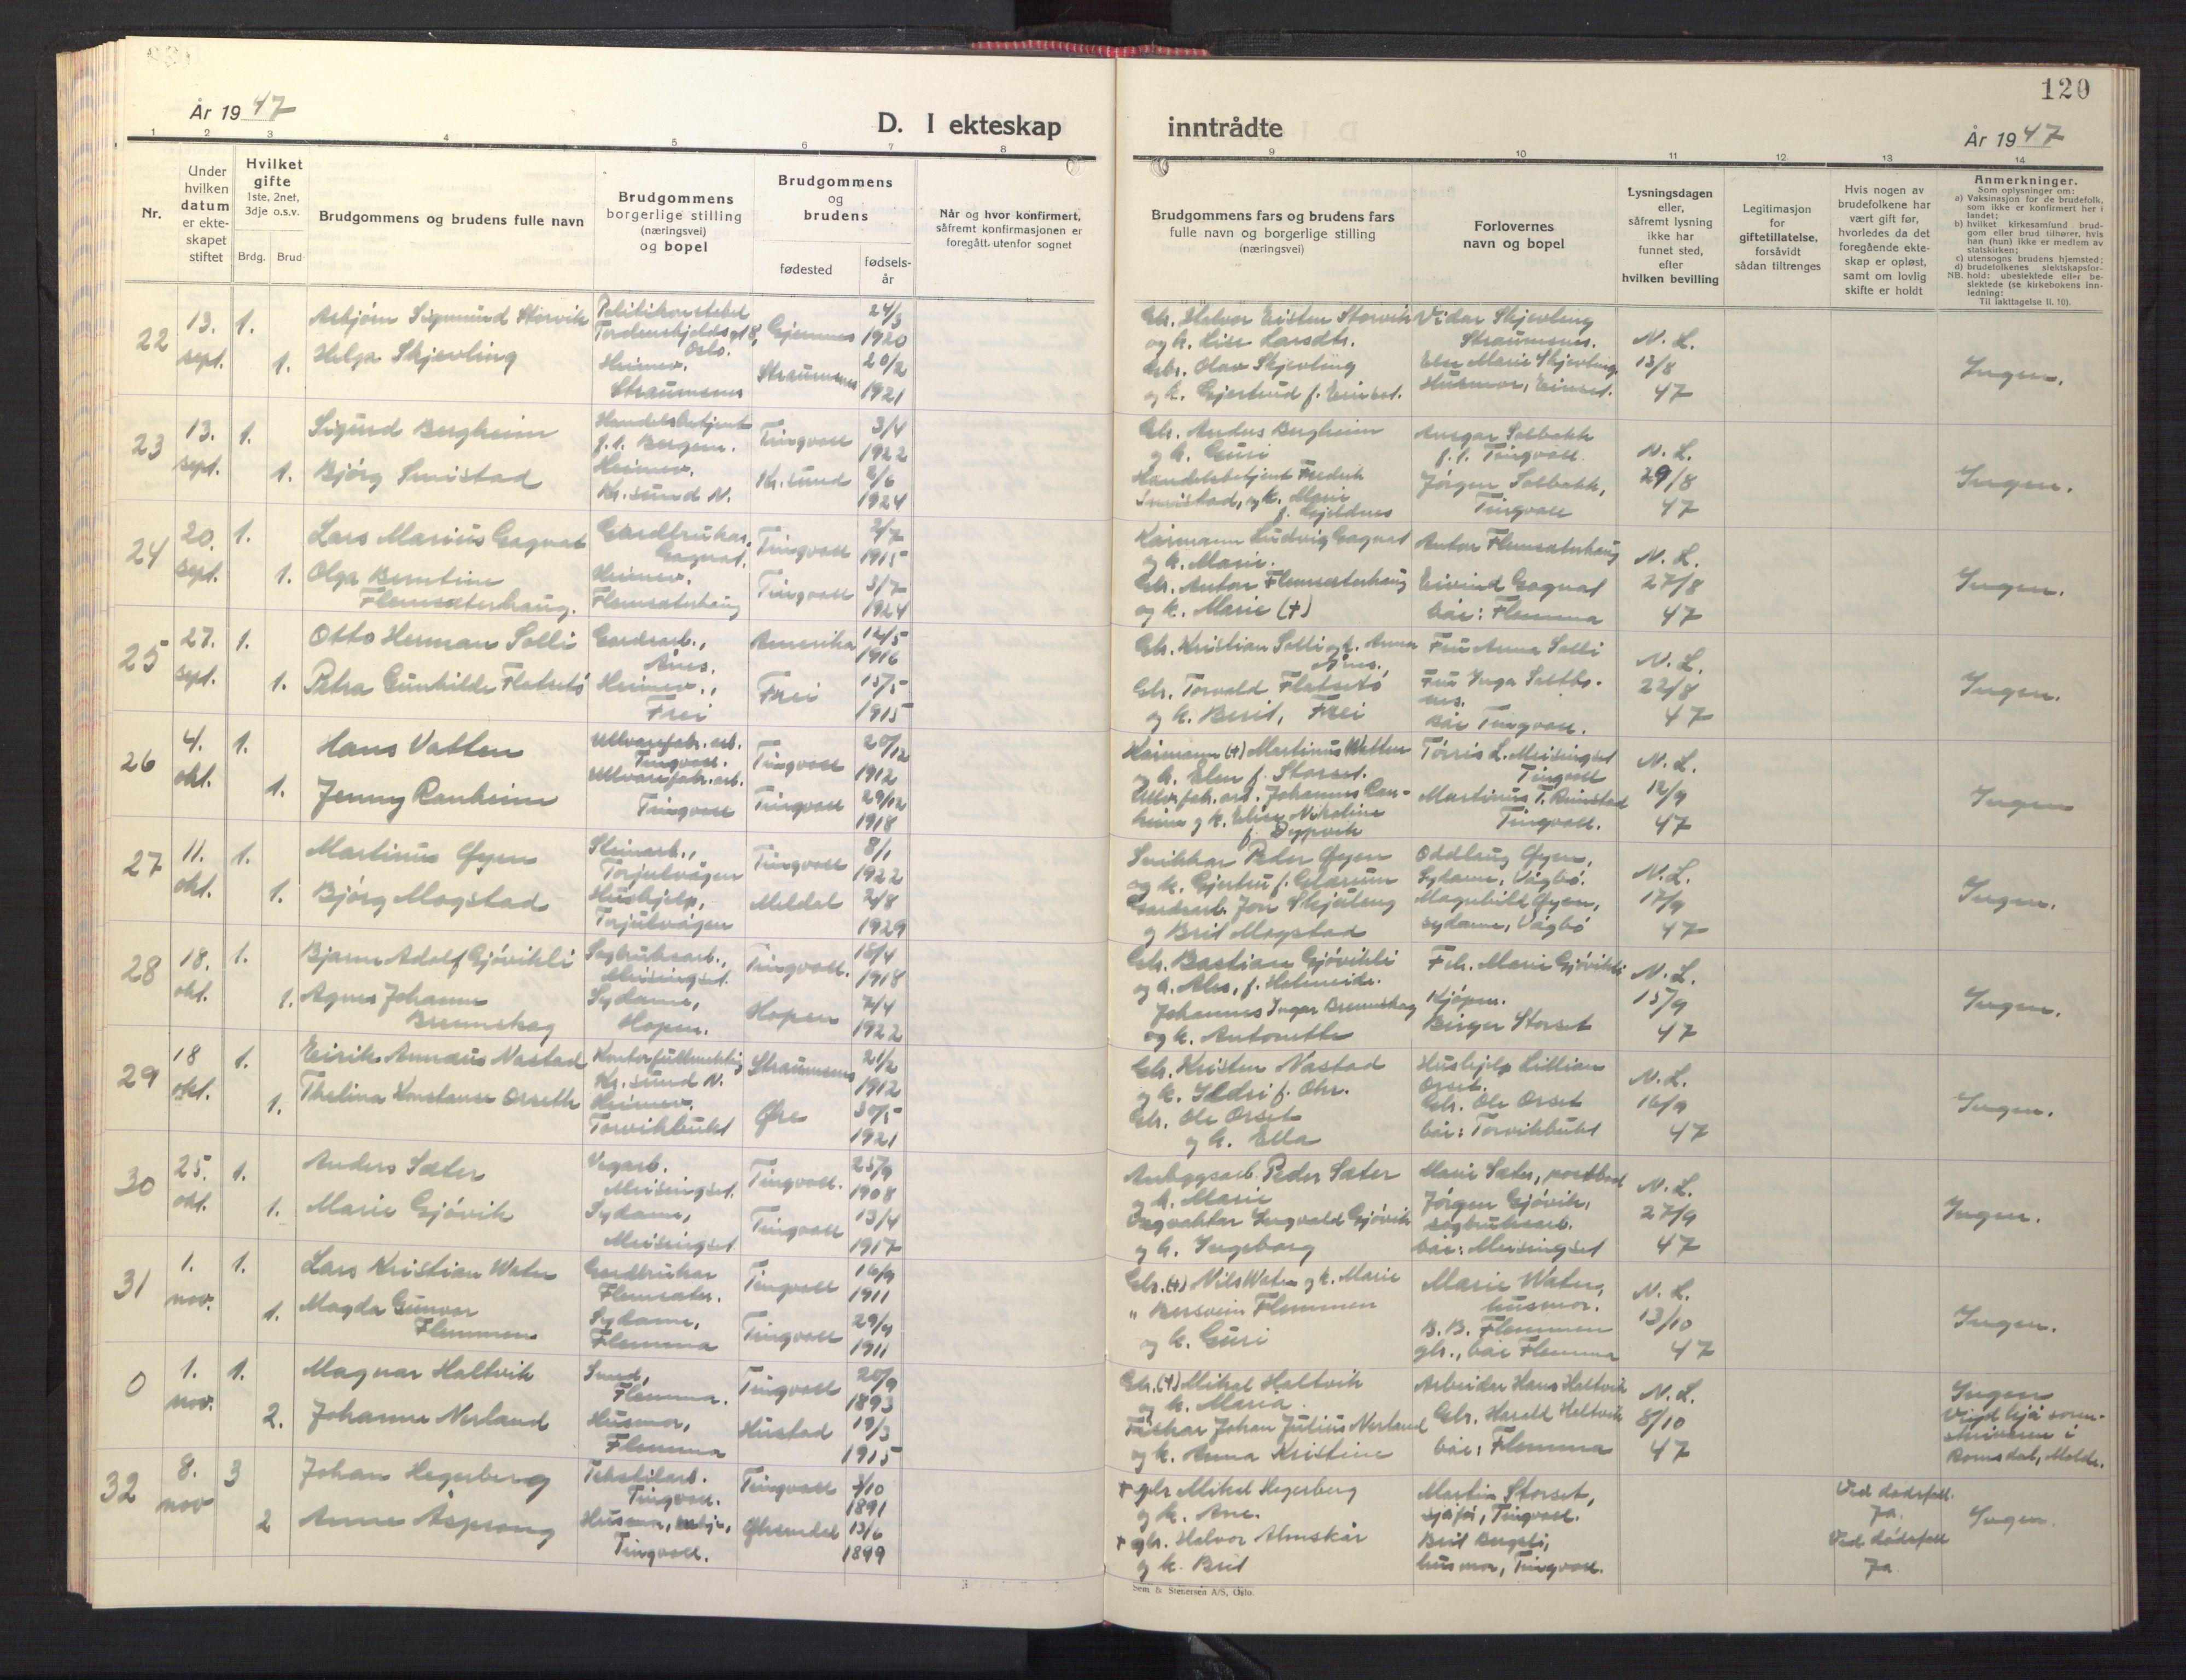 120
År 1947
D. I ekteskap inntrådte
År 1947
1 2 3 4 5 6 7 8 9 10 11 12 13 14
Nr.
Under hvilken datum er ekteskapet stiftet
Hvilket gifte 1ste, 2net, 3dje o.s.v.
Brdg. Brud
Brudgommens og brudens fulle navn
Brudgommens borgerlige stilling (næringsvei) og bopel
Brudgommens og brudens
fødested
fødselsår
Når og hvor konfirmert, såfremt konfirmasjonen er foregått utenfor sognet
Brudgommens fars og brudens fars fulle navn og borgerlige stilling (næringsvei)
Forlovernes navn og bopel
Lysningsdagen eller, såfremt lysning ikke har funnet sted, efter hvilken bevilling
Legitimasjon for giftetillatelse, forsåvidt sådan tiltrenges
Hvis nogen av brudefolkene har vært gift før, hvorledes da det foregående ekteskap er opløst, samt om lovlig skifte er holdt
Anmerkninger.
Som oplysninger om:
a) Vaksinasjon for de brudefolk, som ikke er konfirmert her i landet;
b) hvilket kirkesamfund brudgom eller brud tilhører, hvis han (hun) ikke er medlem av statskirken;
c) utensogns brudens hjemsted;
d) brudefolkenes slektskapsforhold: ubeslektede eller beslektede (se kirkebokens innledning;
NB.
Til iakttagelse II. 10).
22 13. sept. 1. Asbjørn Sigmund Storvik Politikonstabel Tordenskjoldsgt 8, Oslo. Gjemnes 24/3 1920
1. Helga Skjevling Heimev. Straumsnes Straumsnes 20/2 1921
Gbr. Halvor Eristen Storvik og k. Lise Larsdtr. Vidar Skjevling Straumsnes. N. L. 13/8 47
Gbr. Olav Skjevling og k. Gjertrud f. Einset. Else Marie Skjevling. Husmor, Einset. Ingen.
23 13. sept. 1. Sigurd Bergheim Handelsbetjent f.t. Bergen. Tingvoll 3/4 1922
1. Bjørg Smistad Heimev. Kr.sund N. Kr.sund 2/6 1924
Gbr. Anders Bergheim og k. Guri Ansgar Solbakk f.t. Tingvoll. N. L. 29/8 47
Handelsbetjent Fredrik Smistad, og k. Marie f. Gjeldnes Jørgen Solbakk, Tingvoll Ingen.
24 20. sept. 1. Lars Marius Gagnat Gardbrukar, Gagnat. Tingvoll 2/7 1915
1. Olga Berntine Flemsæterhaug. Heimev. Flemsæterhaug Tingvoll 3/7 1924
Kårmann Ludvig Gagnat og k. Marie. Anton Flemsæterhaug N. L. 27/8 47
Gbr. Anton Flemsæterhaug og k. Marie (+) Eivind Gagnat båe: Flemma Ingen.
25 27. sept. 1. Otto Herman Solli Gardsarb., Aines. Amerika 12/5 1916
1. Petra Gunhilde Flatsetø Heimev., Frei Frei 15/5 1915
Gbr. Kristian Solli og k. Anna Fru Anna Solli N. L. 22/8 47
Gbr. Torvald Flatsetø og k. Berit, Frei Fru Inga båe Tingvoll. Ingen.
26 4. okt. 1. Hans Vatten Ullvarefabr.arb. Tingvoll. Tingvoll 20/12 1912
1. Jenny Ranheim Ullvarefabr.arb. Tingvoll Tingvoll 29/12 1918
Kårmann (+) Martinus Watten og k. Elen f. Storset. Tørris L. Meisingset Tingvoll N. L. 12/9 47
Ullv.fabr.arb. Johannes Ranheim og k. Elise Nikoline f. Dypvik Martinus T. Rimstad Tingvoll. Ingen
27 11. okt. 1. Martinus Øyen Steinarb., Torjulvågen Tingvoll 8/1 1922
1. Bjørg Mogstad Hushjelp, Torjulvågen Meldal 2/8 1929
Snikkar Peder Øyen og k. Gjertru f. Glærum Oddlaug Øyen, Sydame, Vågbø. N. L. 17/9 47
Gardsarb. Jon Skjøleng og Brit Mogstad Magnhild Øyen, sydame, Vågbø Ingen.
28 18. okt. 1. Bjarne Adolf Gjøvikli Sagbruksarb., Meisingset. Tingvoll. 18/4 1918
1. Agnes Johanne Brennskag Sydame, Hopen. Hopen 7/4 1922
Gbr. Bastian Gjøvikli og k. Ales, f. Holmeide. Frk. Marie Gjøvikli N. L. 15/9 47
Johannes Inger Brennskag og k. Antonette Kjøpm. Birger Storset Ingen.
29 18 okt. 1. Eirik Annæus Nastad Kontorfullmektig Kr.sund N. Straumsnes 21/2 1912
1. Thelina Konstanse Orseth Heimev. Torvikbukt Øre 30/5 1921
Gbr. Kristen Nastad og k. Ildri f. Ohr. Hushjelp Lillian Orset. N. L. 16/9 47
Gbr. Ole Orset og k. Ella Gbr. Ole Orset båe: Torvikbukt Ingen.
30 25. okt. 1. Anders Sæter Vegarb. Meisingset. Tingvoll. 25/9 1908
1. Marie Gjøvik Sydame, Meisingset Tingvoll 13/4 1917
Anleggsarb. Peder Sæter og k. Marie Marie Sæter, postbud N. L. 27/9 47
Ingvald Gjøvik og k. Ingeborg Jørgen Gjøvik, sagbruksarb. båe: Meisingset Ingen.
31 1. nov. 1. Lars Kristian Water Gardbrukar Flemsæter. Tingvoll 16/9 1911
1. Magda Gunvor Flemmen Sydame, Flemma Tingvoll 29/4 1911
Gbr. (+) Nils Water og k. Marie Marie Water, husmor. N. L. 13/10 47
" Bersvein Flemmen og k. Guri B. B. Flemmen gbr., båe Flemma Ingen.
0 1. nov. 1. Magnar Haltvik Smed, Flemma. Tingvoll 20/9 1893
2. Johanne Nerland Husmor, Flemma Hustad 19/3 1915
Gbr. (+) Mikal Haltvik og k. Maria. Arbeidar Hans Haltvik N. L. 8/10 47
Fiskar Johan Julius Nerland og k. Anna Kristine Gbr. Harald Heltvik båe: Flemma
Ingen Vigd hjå sorenskrivaren i Romsdal, Molde.
32 8. nov 3 Johan Hegerberg Tekstilarb. Tingvoll. Tingvoll 3/10 1891
2 Anne Asprong Husmor, Tingvoll. 13/6 1899
+ gbr Mikal Hegerberg og k. Ane. Martin Storset, sjåfør, Tingvoll. Ved dødsfall. Ja.
+ gbr. Halvor Almskår og k. Brit Brit Bergsli, husmor, Tingvoll. Ved dødsfall Ja Ingen.
Sem & Stenersen A/S, Oslo.